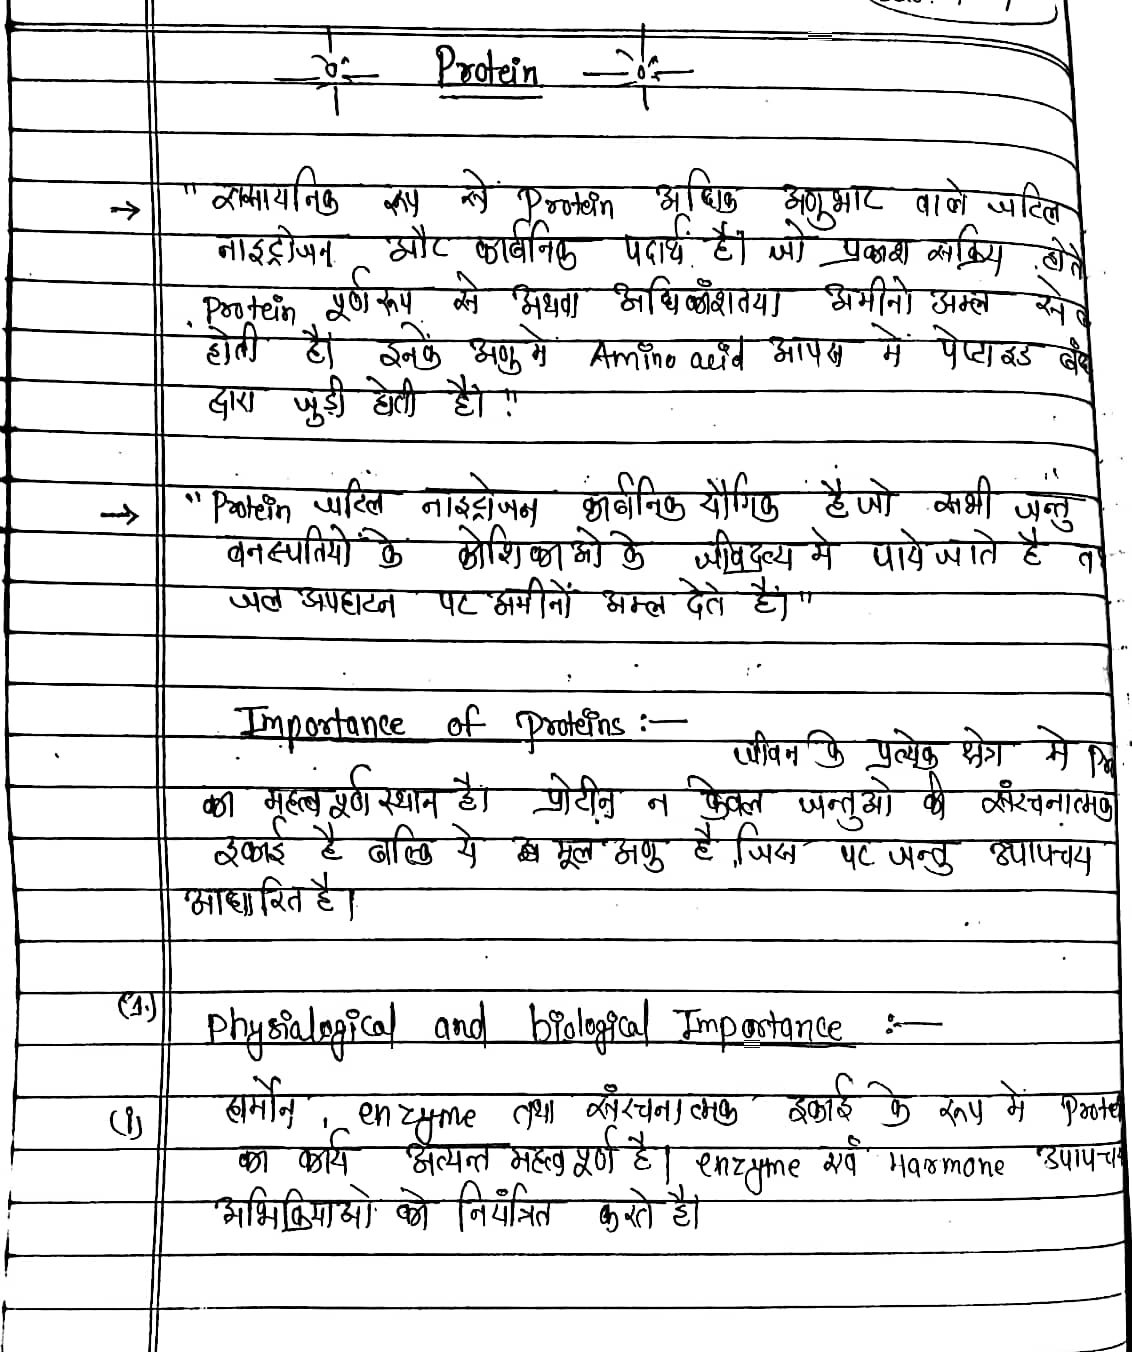 Protein
→ " रासायनिक रूप से Protein अधिक अणुभार वाले जटिल
नाइट्रोजन और कार्बनिक पदार्थ है। जो प्रकाश सक्रिय होते
Protein पूर्ण रूप से अथवा अधिकांशतया अमीनो अम्ल से
होती है। इनके अणु में Amino acid आपस में पेप्टाइड बंध
द्वारा जुड़ी होती है।"
→ "Protein जटिल नाइट्रोजन कार्बनिक यौगिक है जो सभी जन्तु
वनस्पतियों के कोशिकाओ के जीवद्रव्य मे पाये जाते है
जल अपघटन पर अमीनों अम्ल देते है।"
Importance of Proteins :—
जीवन के प्रत्येक क्षेत्र मे
का महत्वपूर्ण स्थान है। प्रोटीन न केवल जन्तुओ की संरचनात्मक
इकाई है बल्कि ये मूल अणु है, जिस पर जन्तु उपापचय
आधारित है।
(1.) Physialogical and biological Importance :—
(i) हार्मोन, enzyme तथा संरचनात्मक इकाई के रूप में Prote
का कार्य अत्यन्त महत्वपूर्ण है। enzyme एवं Harmone उपापचय
अभिक्रियाओ को नियंत्रित करते है।